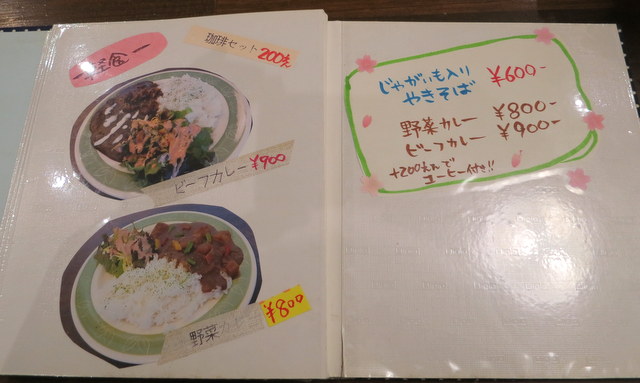 軽食
珈琲セット 200えん
ビーフカレー ¥900
野菜カレー
¥800
じゃがいも入り
やきそば ¥600-
野菜カレー ¥800-
ビーフカレー ¥900-
+200えんで
コーヒー付き!!